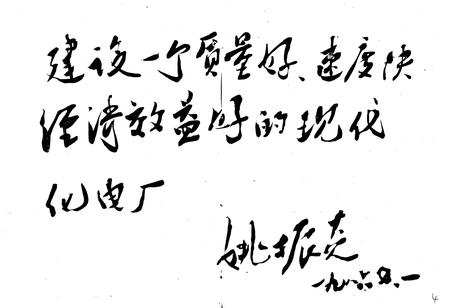 建设一个质量好、速度快
经济效益好的现代
化电厂
姚振炎
一九八六.五.一
4